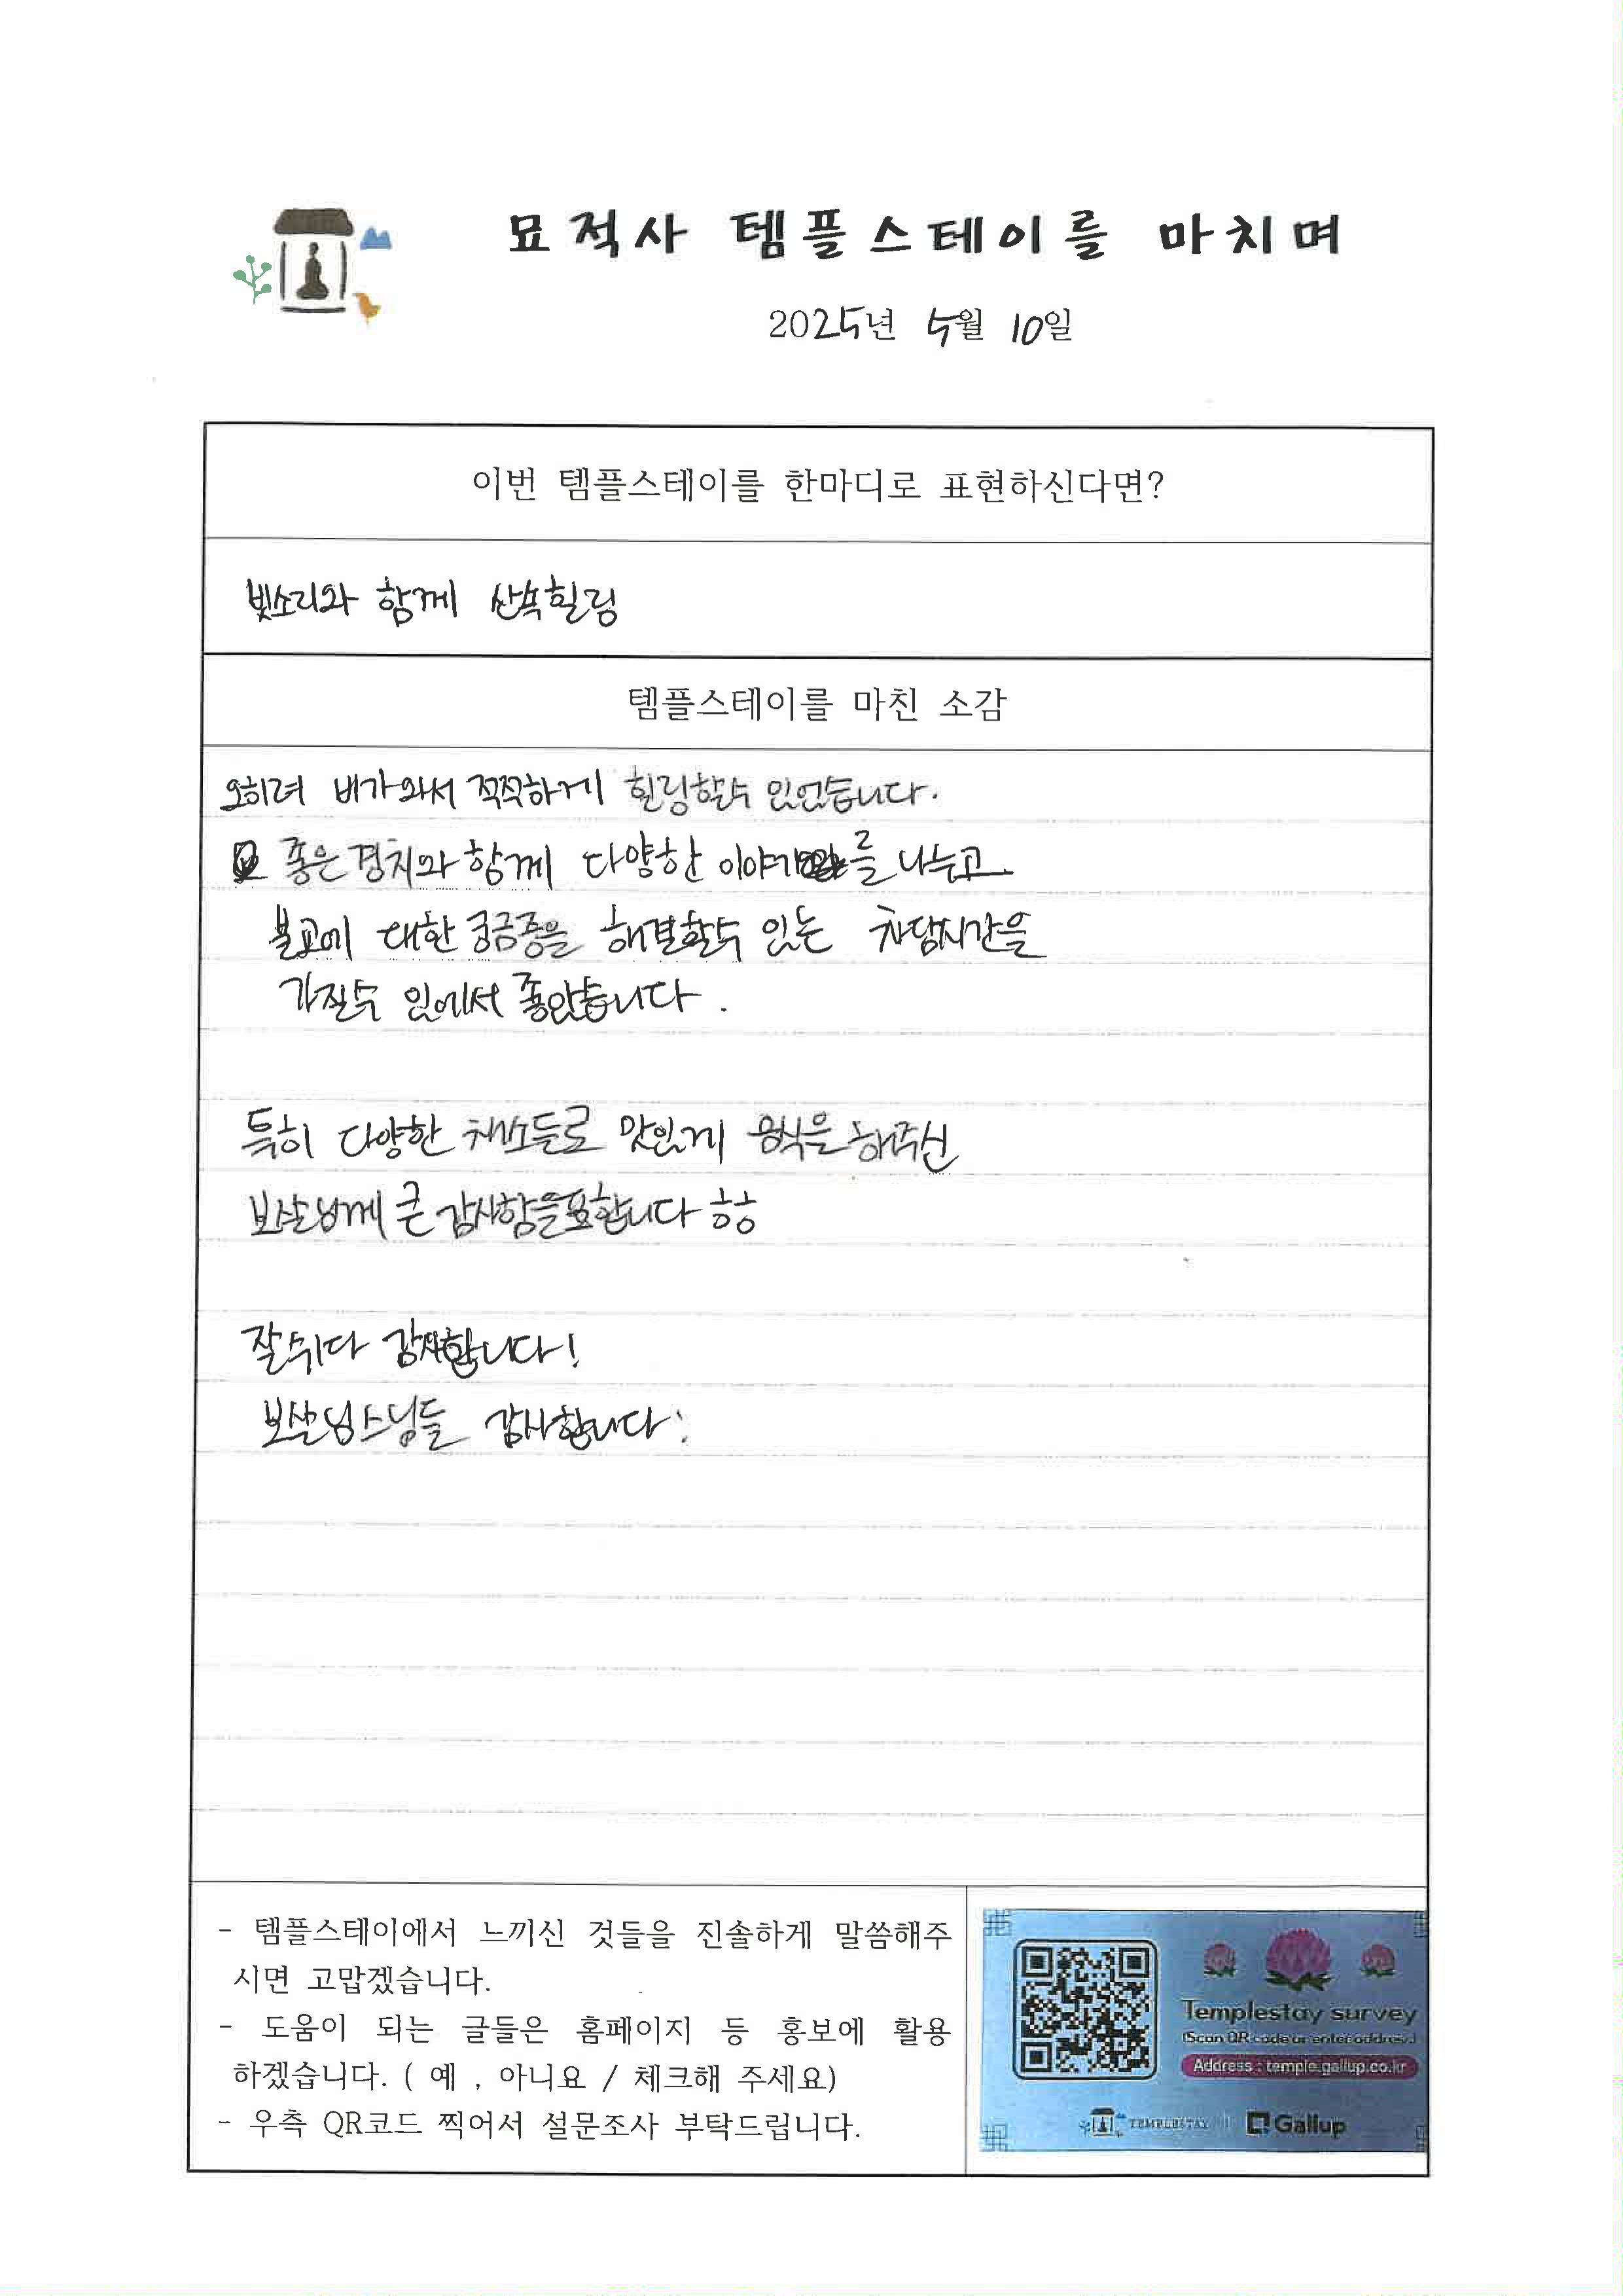 묘적사 템플스테이를 마치며
2025년 5월 10일
이번 템플스테이를 한마디로 표현하신다면?
빗소리와 함께 산속힐링
템플스테이를 마친 소감
오히려 비가와서 적적하게 힐링할수 있었습니다.
좋은경치와 함께 다양한 이야기를 나누고
불교에 대한 궁금증을 해결할수 있는 차담시간을
가질수 있에서 좋았습니다.
특히 다양한 채소들로 맛있게 음식을 해주신
보살님께 큰 감사함을표합니다 ㅎㅎ
잘쉬다 감사합니다!
보살님스님들 감사합니다:
- 템플스테이에서 느끼신 것들을 진솔하게 말씀해주
시면 고맙겠습니다.
- 도움이 되는 글들은 홈페이지 등 홍보에 활용
하겠습니다. ( 예 , 아니요 / 체크해 주세요)
- 우측 QR코드 찍어서 설문조사 부탁드립니다.
Templestay survey
(Scan QR code or enter address)
Address : temple.gallup.co.kr
TEMPLESTAY
Gallup